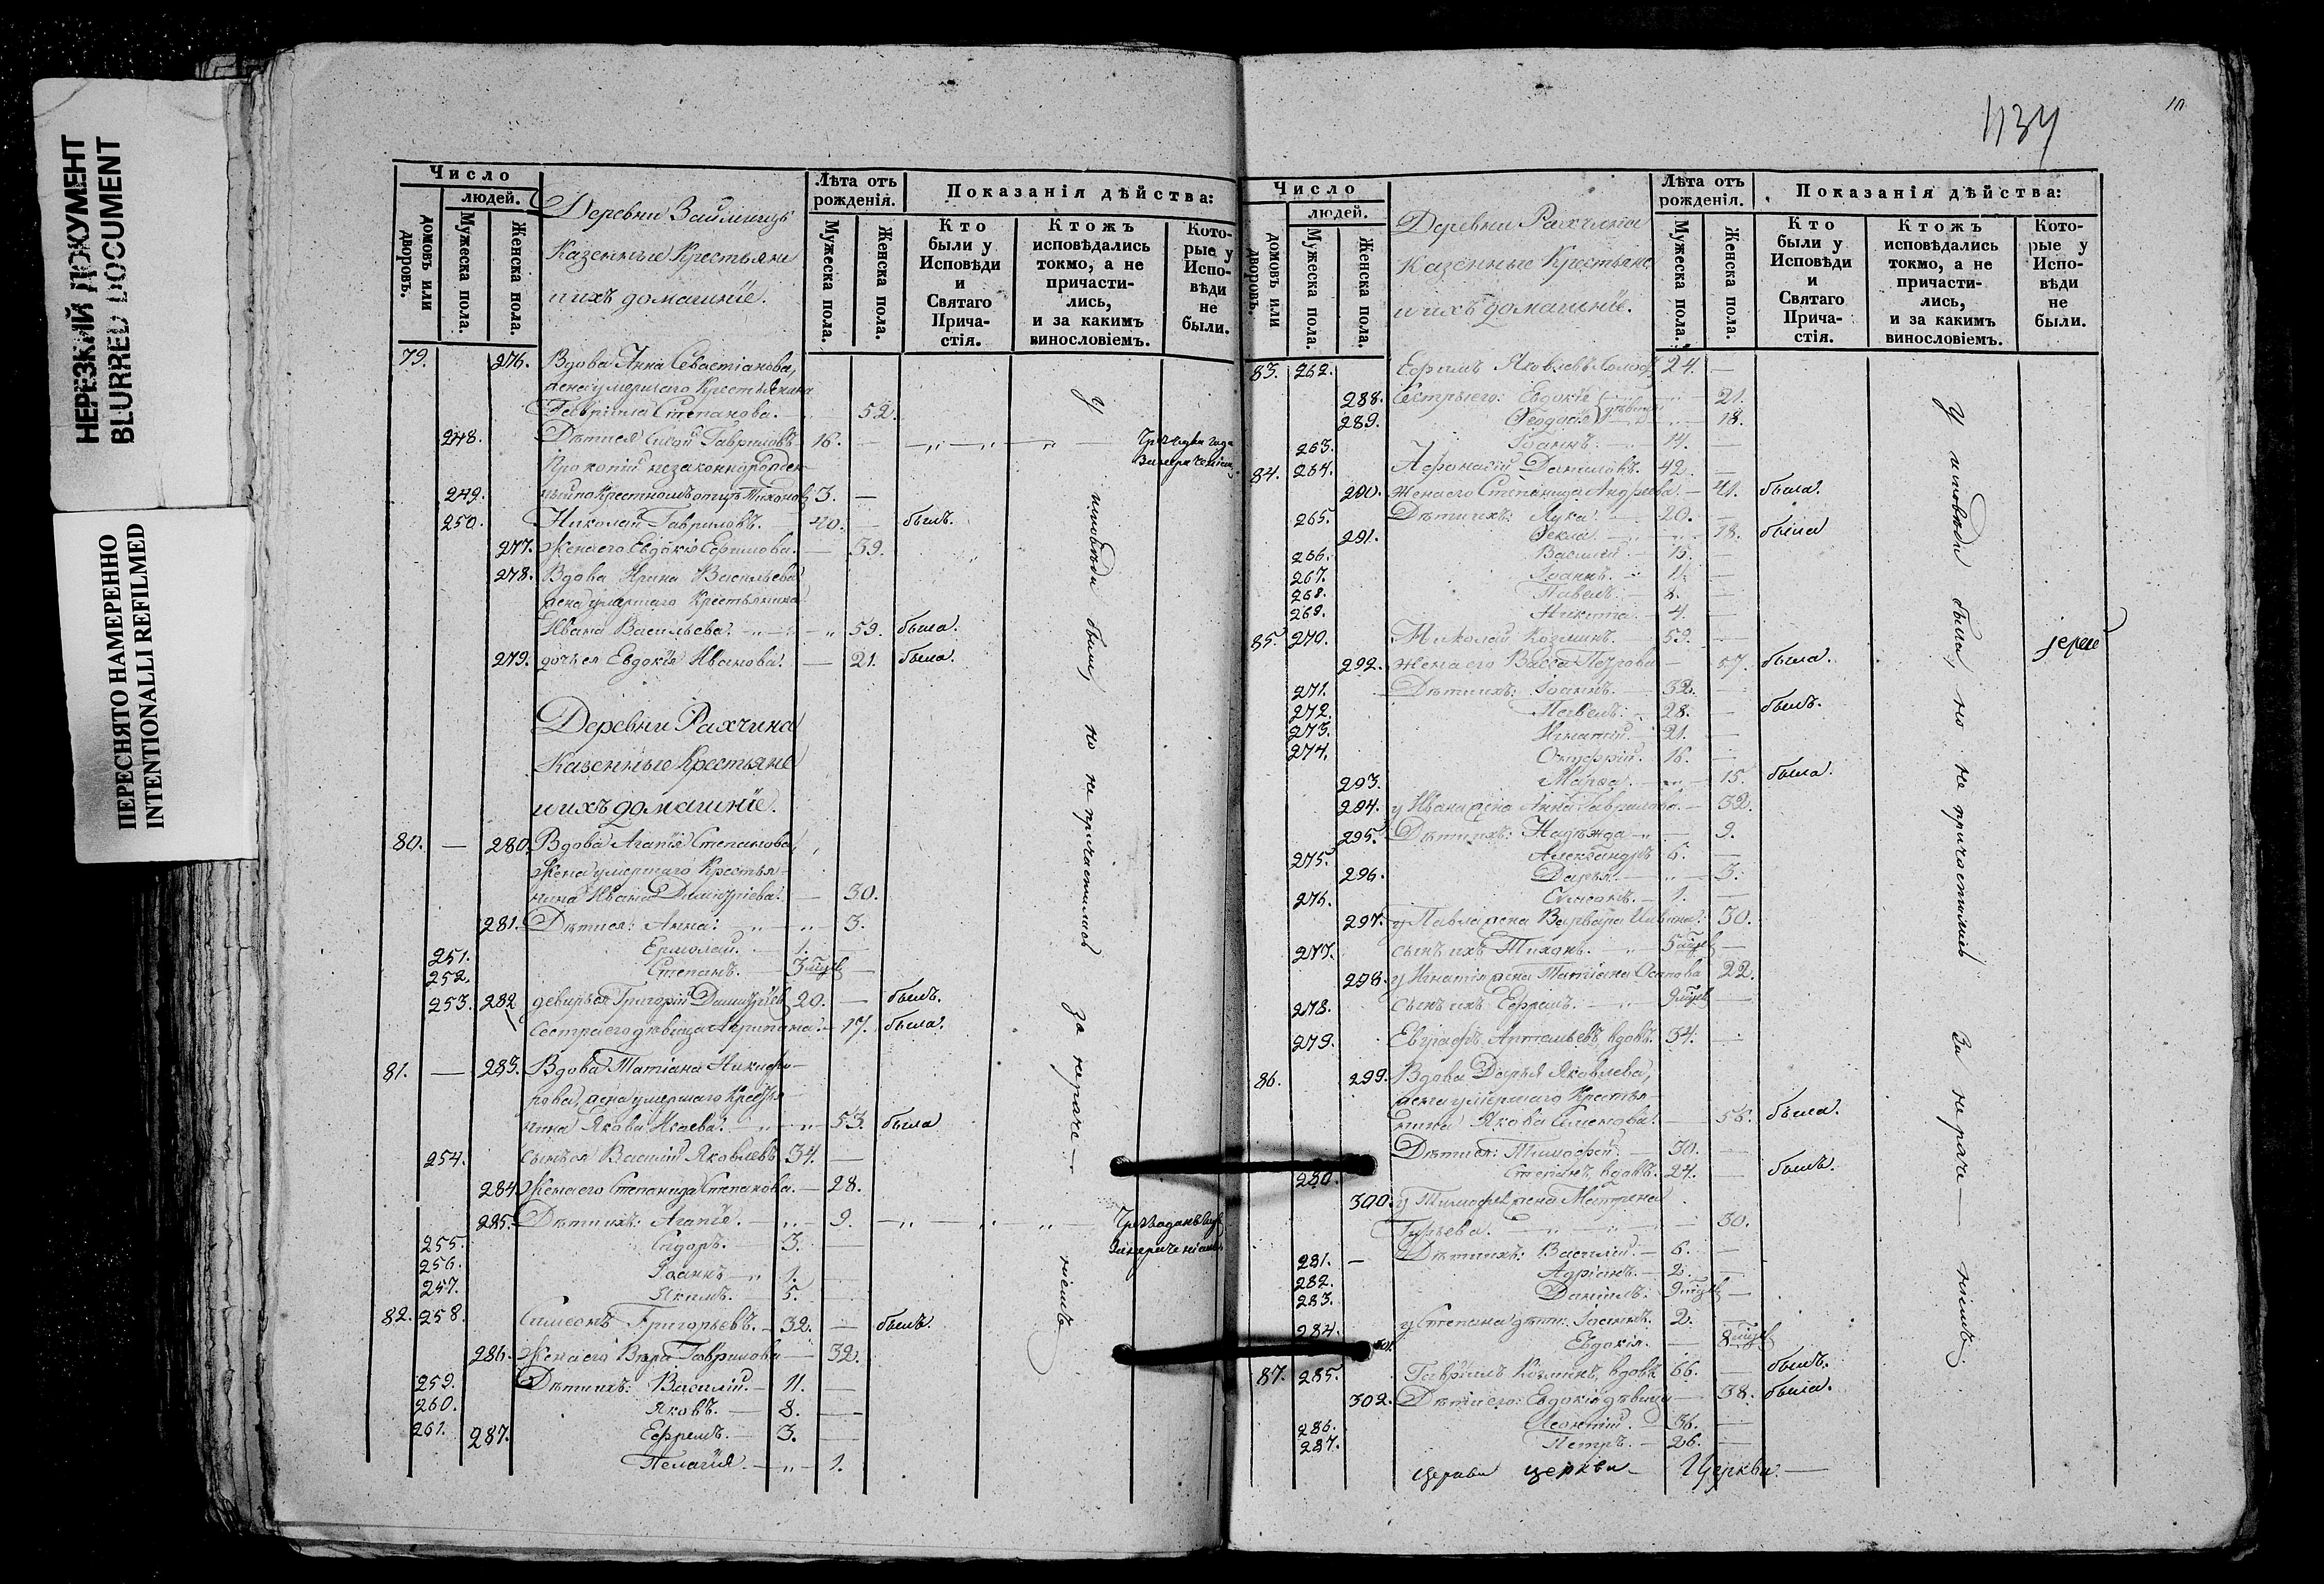 НЕРЕЗКИЙ ДОКУМЕНТ
BLURRED DOCUMENT
ПЕРЕСНЯТО НАМЕРЕННО
INTENTIONALLI REFILMED
Число
людей.
домовъ или дворовъ.
Мужеска пола.
Женска пола.
Деревни
Казенные Крестьяне
и ихъ домашніе.
Лѣта отъ рожденія.
Мужеска пола.
Женска пола.
Показанія дѣйства:
Кто были у Исповѣди и Святаго Прича-стія.
Ктожъ исповѣдались токмо, а не причасти-лись, и за какимъ винословіемъ.
Кото-рые у Испо-вѣди не были.
79. 276. Вдова Анна Севастіанова,
жена умершаго Крестьянина
Гавріила Степанова. 52.
248. Гавриловъ 16. —
Прокопій незаконнорожден-
249. 3. —
250. Николай Гавриловъ. 40. — былъ.
277. Жена его Евдокія Ефимова. — 39.
278. Вдова Ирина Васильева
жена умершаго Крестьянина
Ивана Васильева. 59. была.
279. дочь ея Евдокія Иванова. — 21. была.
Деревни Рахчина
Казенные Крестьяне
и ихъ домашніе.
80. — 280. Вдова Агапія Степанова,
Жена умершаго Крестья-
нина Ивана Димитріева. — 30.
281. Дѣти ея: Анна. 3.
251. Ермолай. — 1. —
252. Степанъ. — 3 —
253. 282 деверь ея Григорій Димитріевъ 20. — былъ.
Сестра его дѣвица Акрипина. — 17. была.
81. — 283. Вдова Татіана Никифо-
рова, жена умершаго Крестья-
нина Якова Исаева. 53. была
254. Сынъ ея Василій Яковлевъ 34. —
284. Жена его Степанида Степанова. — 28.
285. Дѣти ихъ: Агапія. — 9.
255. Сидоръ. — 3. —
256. Іоаннъ — 1. —
257. Якимъ. — 5. —
82. 258. Симеонъ Григорьевъ. — 32. — былъ.
286. Жена его Вѣра Гаврилова — 32.
259. Дѣти ихъ: Василій. — 11. —
260. Яковъ. — 8. —
261. 287. Ефремъ. — 3. —
Пелагія. — 1.
У исповѣди были, но не причастились за нераче-ніемъ
434
10
Число
людей.
домовъ или дворовъ.
Мужеска пола.
Женска пола.
Деревни Рахчина
Казенные Крестьяне
и ихъ домашніе.
Лѣта отъ рожденія.
Мужеска пола.
Женска пола.
Показанія дѣйства:
Кто были у Исповѣди и Святаго Прича-стія.
Ктожъ исповѣдались токмо, а не причасти-лись, и за какимъ винословіемъ.
Кото-рые у Испо-вѣди не были.
83. 262. Ефимъ Яковлевъ 24. —
288. Сестры его: Евдокія 21.
289. Ѳеодосія 18.
263. Іоаннъ 14. —
84. 264. Афонасій Даниловъ. 42. —
290. Жена его Степанида Андреева. — 41. была.
265. Дѣти их: Лука. — 20. —
291. Ѳекла. 18. была
266. Василій — 15. —
267. Іоаннъ. 11. —
268. Павелъ. 8. —
269. Никита. — 4. —
85. 270. Николай Козминъ. — 59. —
292. Жена его Васса Петрова — 57. была.
271. Дѣти ихъ: Іоаннъ. — 32. —
272. Павелъ. 28. — былъ.
273. Игнатій. 21. —
274. Онуфрій. 16. —
293. Марфа. 15. была.
294. у Ивана жена Анна Гаврилова. — 32.
295. Дѣти ихъ: Надежда — 9.
275. Александръ 6. —
296. Дарья. 3.
276. Симеонъ. — 1. —
297. у Павла жена Варвара 30.
277. сынъ ихъ Тихонъ. 5 —
298. у Игнатія жена Татіана Осипова 22.
278. Сынъ ихъ Ефремъ. 9 —
279. Евграфъ вдовъ. 34. —
86. 299. Вдова Дарья Яковлева,
жена умершаго Крестья-
нина Якова Семенова. — 56. была.
Дѣти ея: Тимофей. — 30. —
280. Степанъ, вдовъ. 24. — былъ.
300. у Тимофея жена Матрена
Гурьева. 30.
281. — Дѣти ихъ: Василій. — 6. —
282. Адріанъ. — 2. —
283. Даніилъ. 9 —
284. у Степана дѣти: Іоаннъ. 2. —
301. Евдокія. — 8
87. 285. Гавріилъ Козминъ, вдовъ 66. — былъ.
302. Дѣти его: Евдокія дѣвица — 38. была.
286. Леонтій. — 36. —
287. Петръ. — 26. —
церкви церкви — Церкви —
У исповѣди были, но не причастились за нераче-ніемъ.